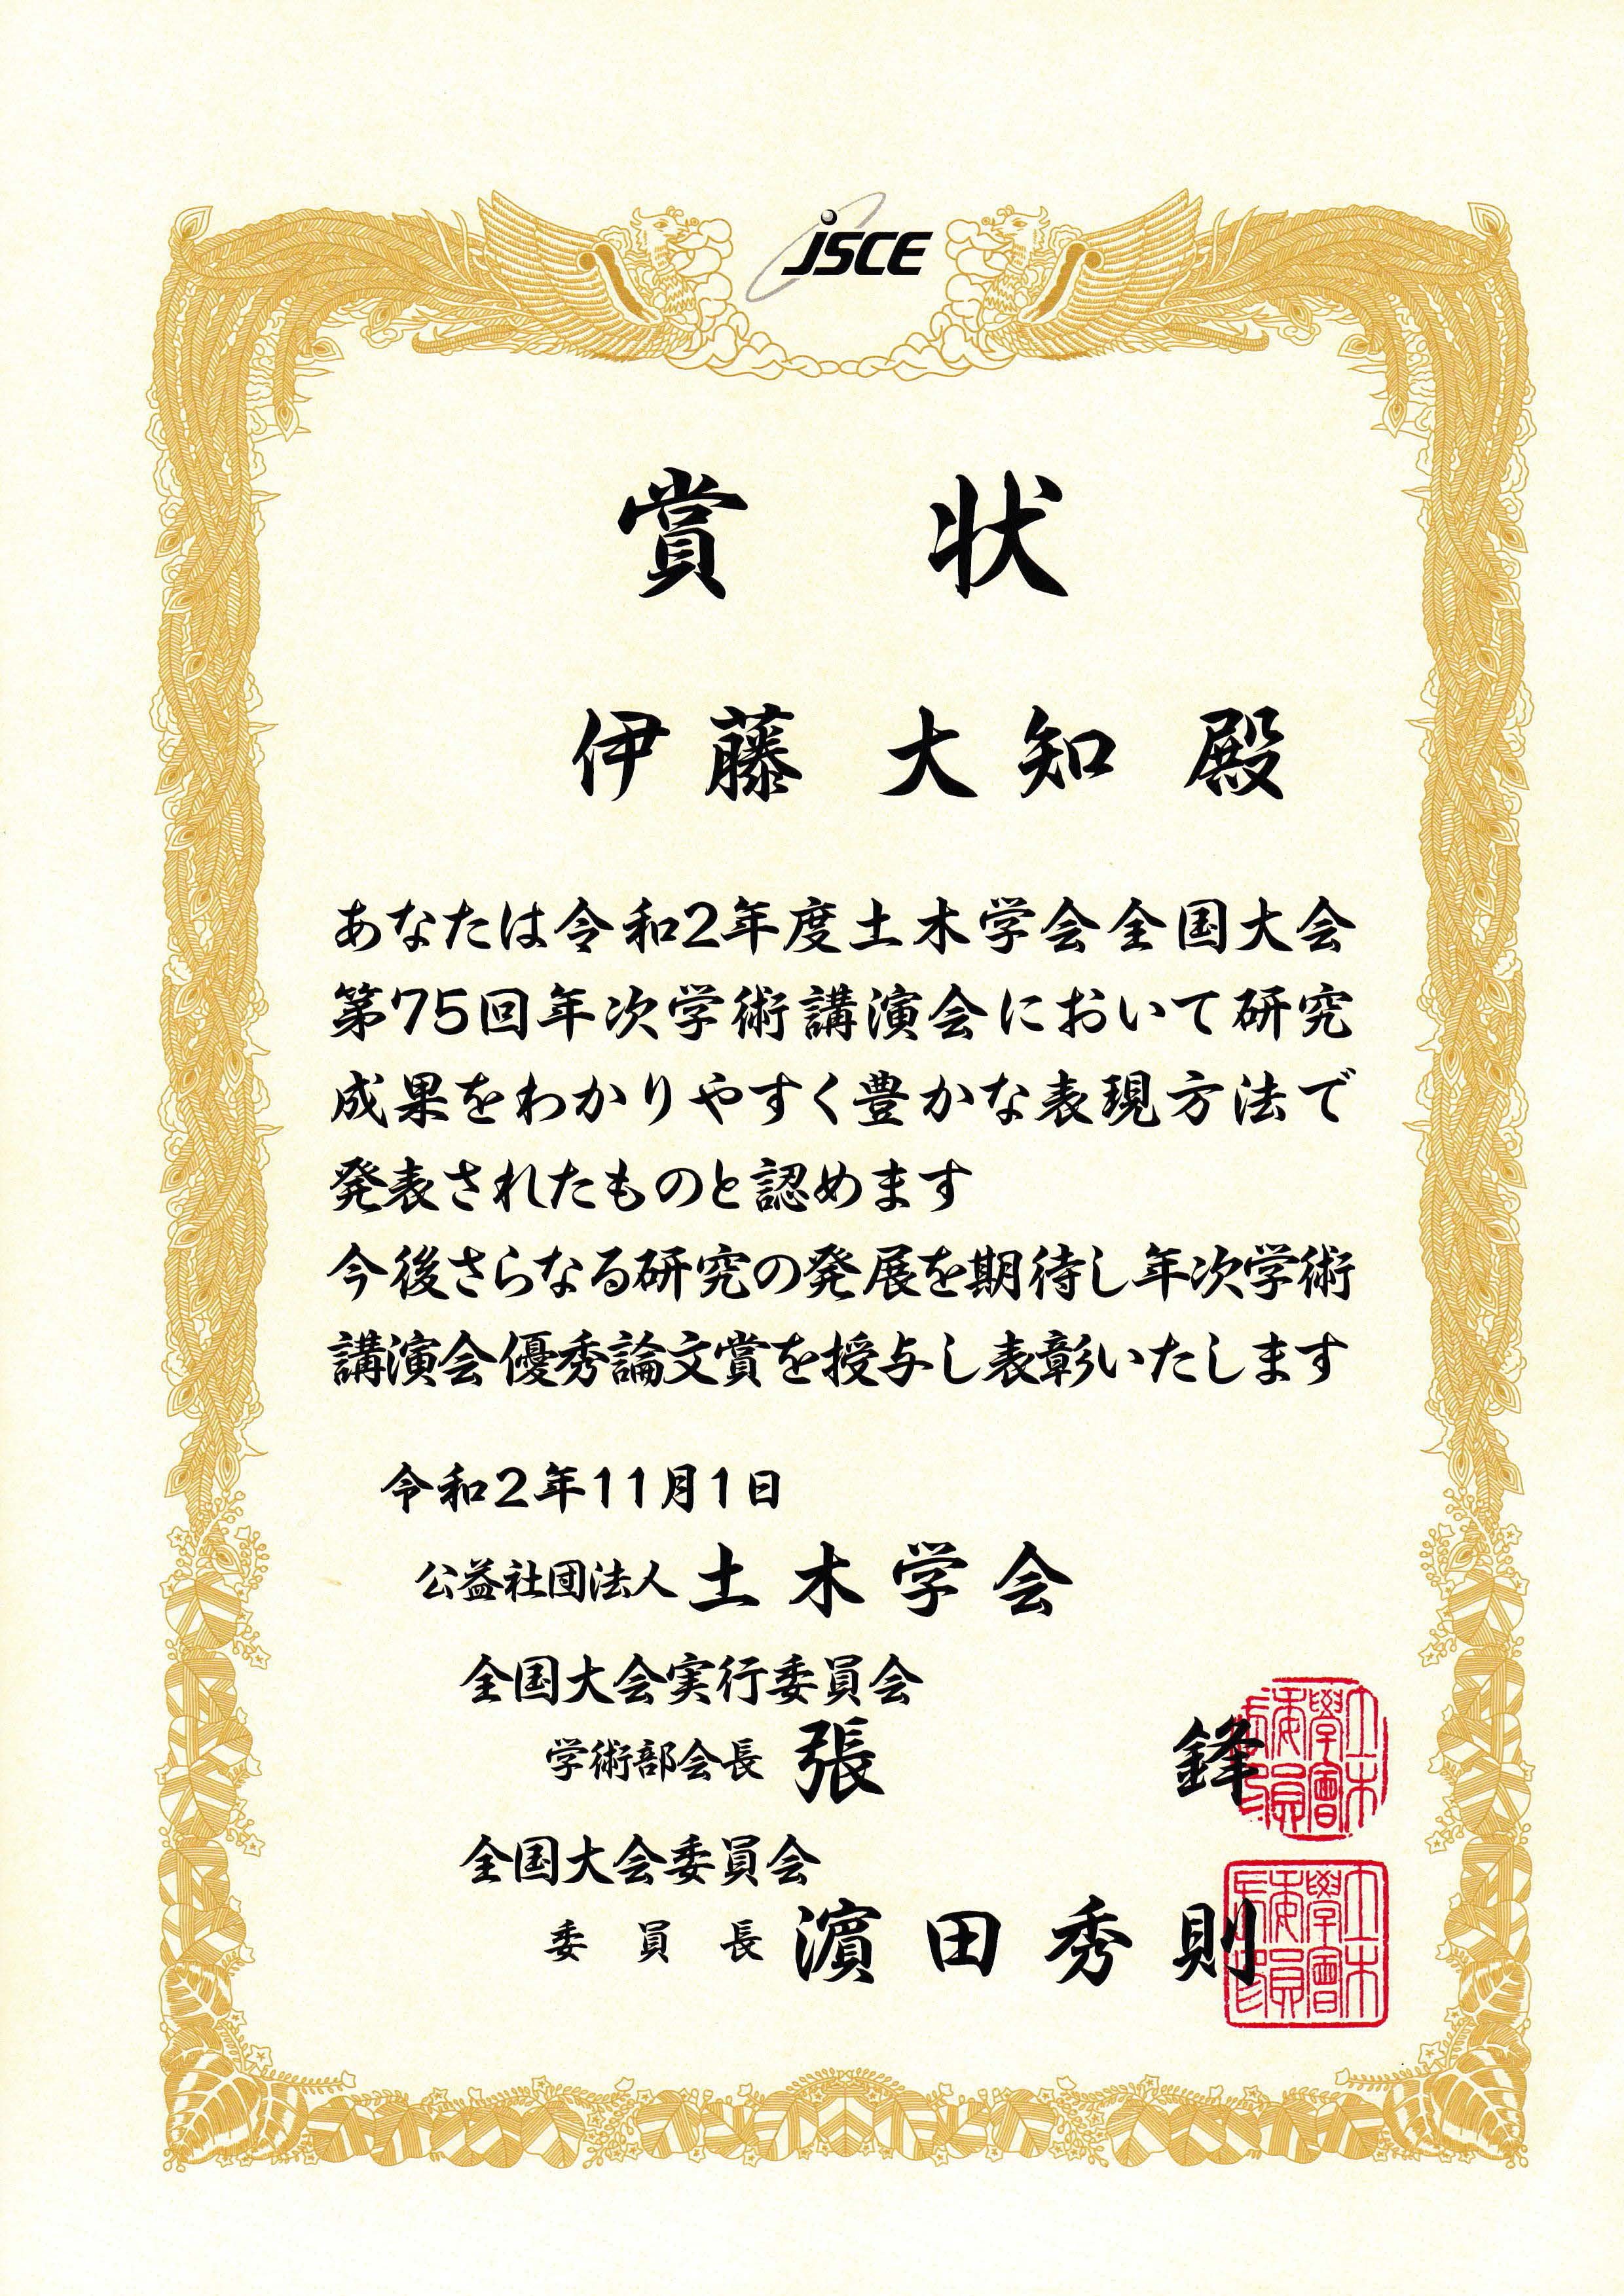 JSCE
賞 状
伊藤 大知 殿
あなたは令和2年度土木学会全国大会
第75回年次学術講演会において研究
成果をわかりやすく豊かな表現方法で
発表されたものと認めます
今後さらなる研究の発展を期待し年次学術
講演会優秀論文賞を授与し表彰いたします
令和2年11月1日
公益社団法人 土木学会
全国大会実行委員会
学術部会長 張 鋒
土木學會委員長印
全国大会委員会
委員長 濵田秀則
土木學會委員長印